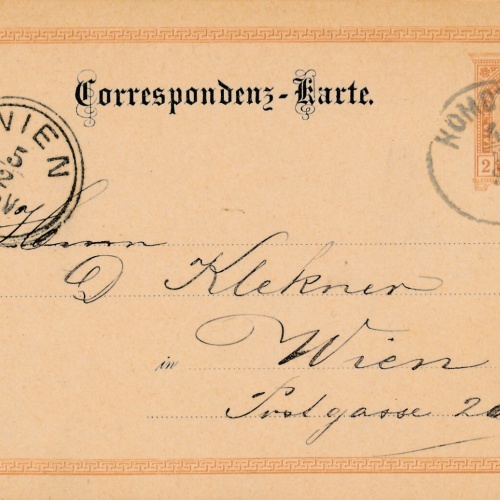 Correspondenz-Karte.
WIEN
KOMO
2
Herrn
D Klekner
in Wien
Postgasse 20